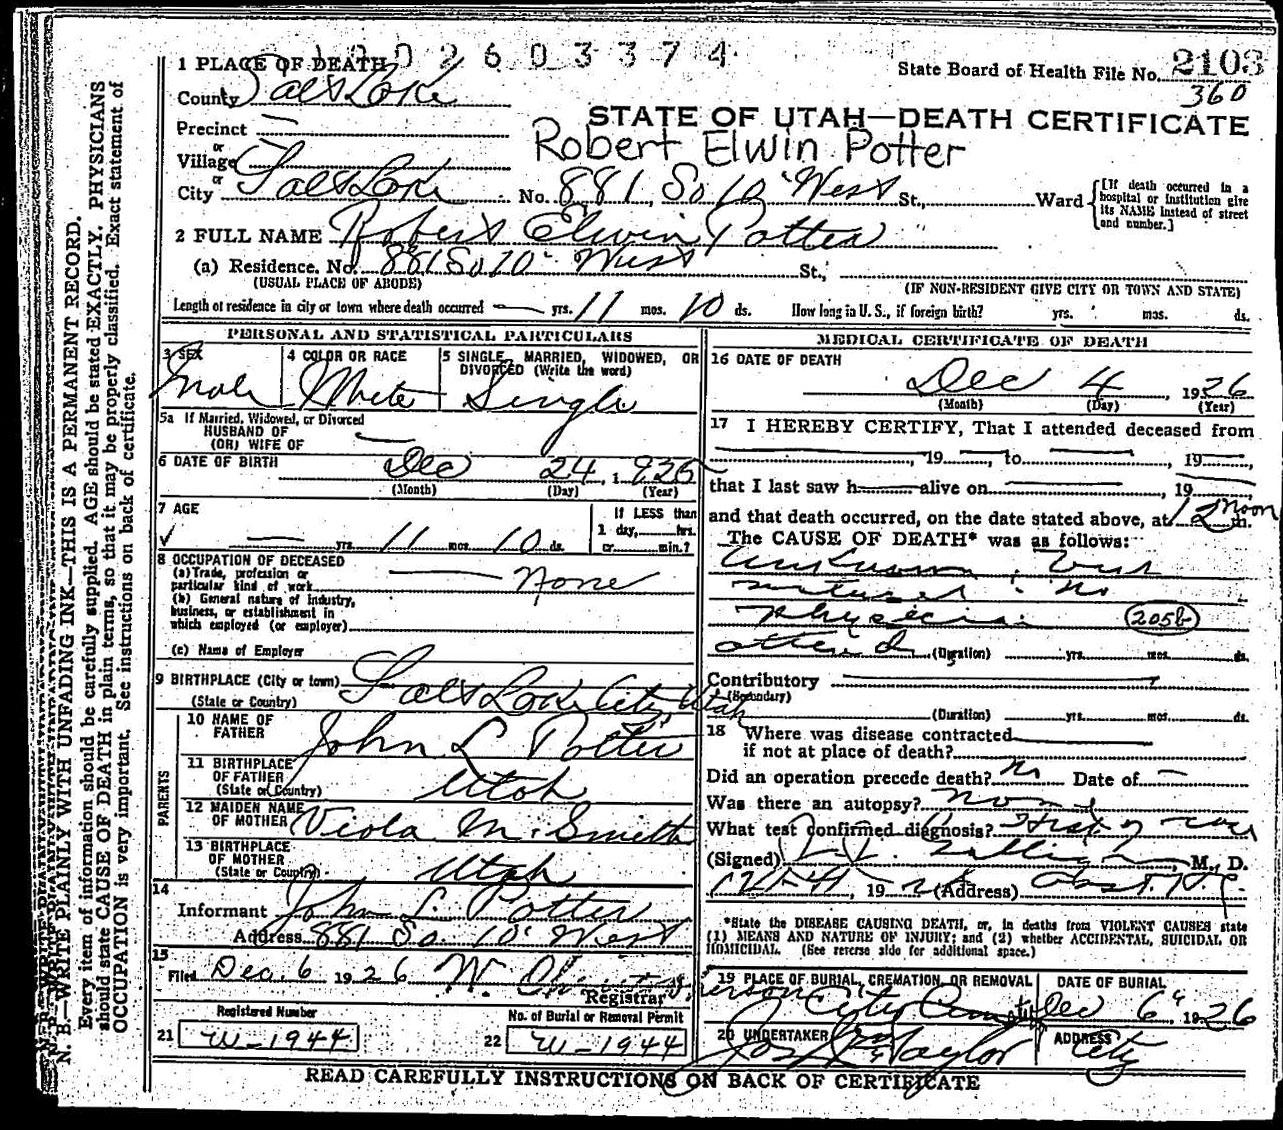 1002603374
1 PLACE OF DEATH
State Board of Health File No. 2103
County Salt Lake
360
STATE OF UTAH—DEATH CERTIFICATE
Precinct —
Robert Elwin Potter
or
Village
or
City Salt Lake No. 881 So 10' West St., Ward
[If death occurred in a
hospital or institution give
its NAME instead of street
and number.]
2 FULL NAME Robert Elwin Potter
(a) Residence. No. 881 So 10' West St.,
(USUAL PLACE OF ABODE) (IF NON-RESIDENT GIVE CITY OR TOWN AND STATE)
Length of residence in city or town where death occurred — yrs. 11 mos. 10 ds. How long in U. S., if foreign birth? yrs. mos. ds.
PERSONAL AND STATISTICAL PARTICULARS
3 SEX
Male
4 COLOR OR RACE
White
5 SINGLE, MARRIED, WIDOWED, OR
DIVORCED (Write the word)
Single
5a If Married, Widowed, or Divorced
HUSBAND OF
(OR) WIFE OF —
6 DATE OF BIRTH Dec 24, 1925
(Month) (Day) (Year)
7 AGE
✓ — yrs. 11 mos. 10 ds.
If LESS than
1 day, hrs.
or min.?
8 OCCUPATION OF DECEASED
(a) Trade, profession or
particular kind of work — None
(b) General nature of industry,
business, or establishment in
which employed (or employer)
(c) Name of Employer
9 BIRTHPLACE (City or town) Salt Lake City Utah
(State or Country)
PARENTS
10 NAME OF
FATHER John L Potter
11 BIRTHPLACE
OF FATHER
(State or Country) Utah
12 MAIDEN NAME
OF MOTHER Viola M. Smith
13 BIRTHPLACE
OF MOTHER
(State or Country) Utah
14
Informant John L. Potter
Address 881 So. 10' West
15
Filed Dec. 6 1926 W.
Registrar
Registered Number
21 W-1944
No. of Burial or Removal Permit
22 W-1944
MEDICAL CERTIFICATE OF DEATH
16 DATE OF DEATH
Dec 4, 1926
(Month) (Day) (Year)
17 I HEREBY CERTIFY, That I attended deceased from
—, 19—, to —, 19—,
that I last saw h— alive on —, 19—
and that death occurred, on the date stated above, at 12 Noon m.
The CAUSE OF DEATH* was as follows:
Unknown, but
natural. No
physician 205b
attend (Duration) yrs. mos. ds.
Contributory —
(Secondary)
(Duration) yrs. mos. ds.
18 Where was disease contracted
if not at place of death? —
Did an operation precede death? No Date of —
Was there an autopsy? None
What test confirmed diagnosis? Hist of case
(Signed) M. D.
, 19 26 (Address)
*State the DISEASE CAUSING DEATH, or, in deaths from VIOLENT CAUSES state
(1) MEANS AND NATURE OF INJURY; and (2) whether ACCIDENTAL, SUICIDAL OR
HOMICIDAL. (See reverse side for additional space.)
19 PLACE OF BURIAL, CREMATION, OR REMOVAL
City Cem
DATE OF BURIAL
Dec 6" 1926
20 UNDERTAKER
Jos Taylor
ADDRESS
City
READ CAREFULLY INSTRUCTIONS ON BACK OF CERTIFICATE
N. B.—WRITE PLAINLY WITH UNFADING INK—THIS IS A PERMANENT RECORD.
Every item of information should be carefully supplied. AGE should be stated EXACTLY. PHYSICIANS
should state CAUSE OF DEATH in plain terms, so that it may be properly classified. Exact statement of
OCCUPATION is very important. See instructions on back of certificate.